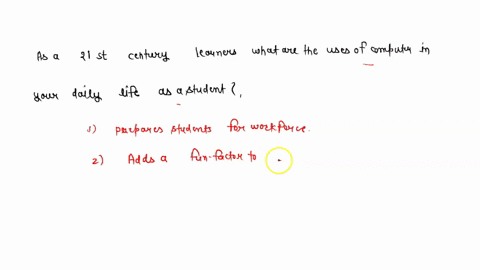 As a 21st century learners what are the uses of computer in
your daily life as a student?,
1) prepares students for workforce.
2) Adds a fun-factor to